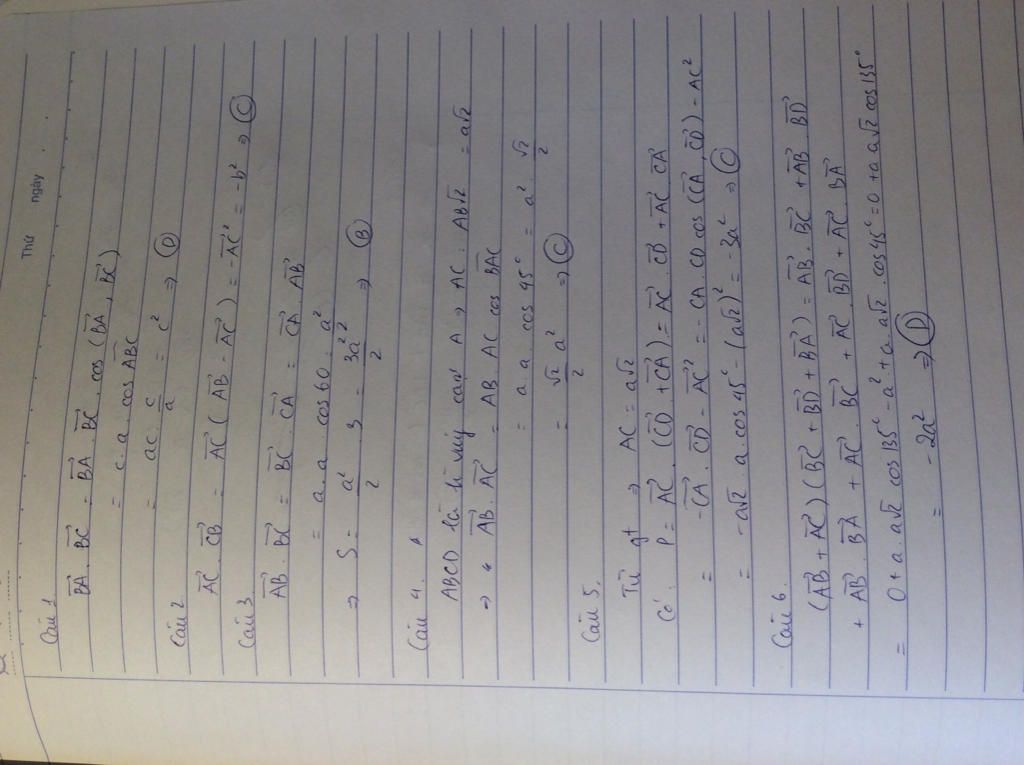 Thứ ngày
Câu 1
$\vec{BA}.\vec{BC} = \vec{BA}.\vec{BC}.\cos(\vec{BA},\vec{BC})$
$= c.a.\cos\widehat{ABC}$
$= ac.\frac{c}{a} = c^2$ ⇒ Ⓓ
Câu 2.
$\vec{AC}.\vec{CB} = \vec{AC}(\vec{AB} - \vec{AC}) = -\vec{AC}^2 = -b^2$ ⇒ Ⓒ
Câu 3
$\vec{AB}.\vec{BC} = \vec{BC}.\vec{CA} = \vec{CA}.\vec{AB}$
$= a.a.\cos 60 = a^2$
⇒ $S = \frac{a^2}{2}.3 = \frac{3a^2}{2}$ ⇒ Ⓑ
Câu 4.
ABCD là h vuông cạnh A ⇒ $AC = AB\sqrt{2} = a\sqrt{2}$
⇒ $\vec{AB}.\vec{AC} = AB.AC \cos\widehat{BAC}$
$= a.a.\cos 45° = a^2.\frac{\sqrt{2}}{2}$
$= \frac{\sqrt{2}}{2}a^2$ ⇒ Ⓒ
Câu 5.
Từ gt ⇒ $AC = a\sqrt{2}$
Có: $P = \vec{AC}.(\vec{CD} + \vec{CA}) = \vec{AC}.\vec{CD} + \vec{AC}.\vec{CA}$
$= -\vec{CA}.\vec{CD} - \vec{AC}^2 = -CA.CD\cos(\vec{CA},\vec{CD}) - AC^2$
$= -a\sqrt{2}.a.\cos 45° - (a\sqrt{2})^2 = -3a^2$ ⇒ Ⓒ
Câu 6.
$(\vec{AB} + \vec{AC})(\vec{BC} + \vec{BD} + \vec{BA}) = \vec{AB}.\vec{BC} + \vec{AB}.\vec{BD}$
$+ \vec{AB}.\vec{BA} + \vec{AC}.\vec{BC} + \vec{AC}.\vec{BD} + \vec{AC}.\vec{BA}$
$= 0 + a.a\sqrt{2}\cos 135° - a^2 + a.a\sqrt{2}.\cos 45° = 0 + a.a\sqrt{2}\cos 135°$
$= -2a^2$ ⇒ Ⓓ